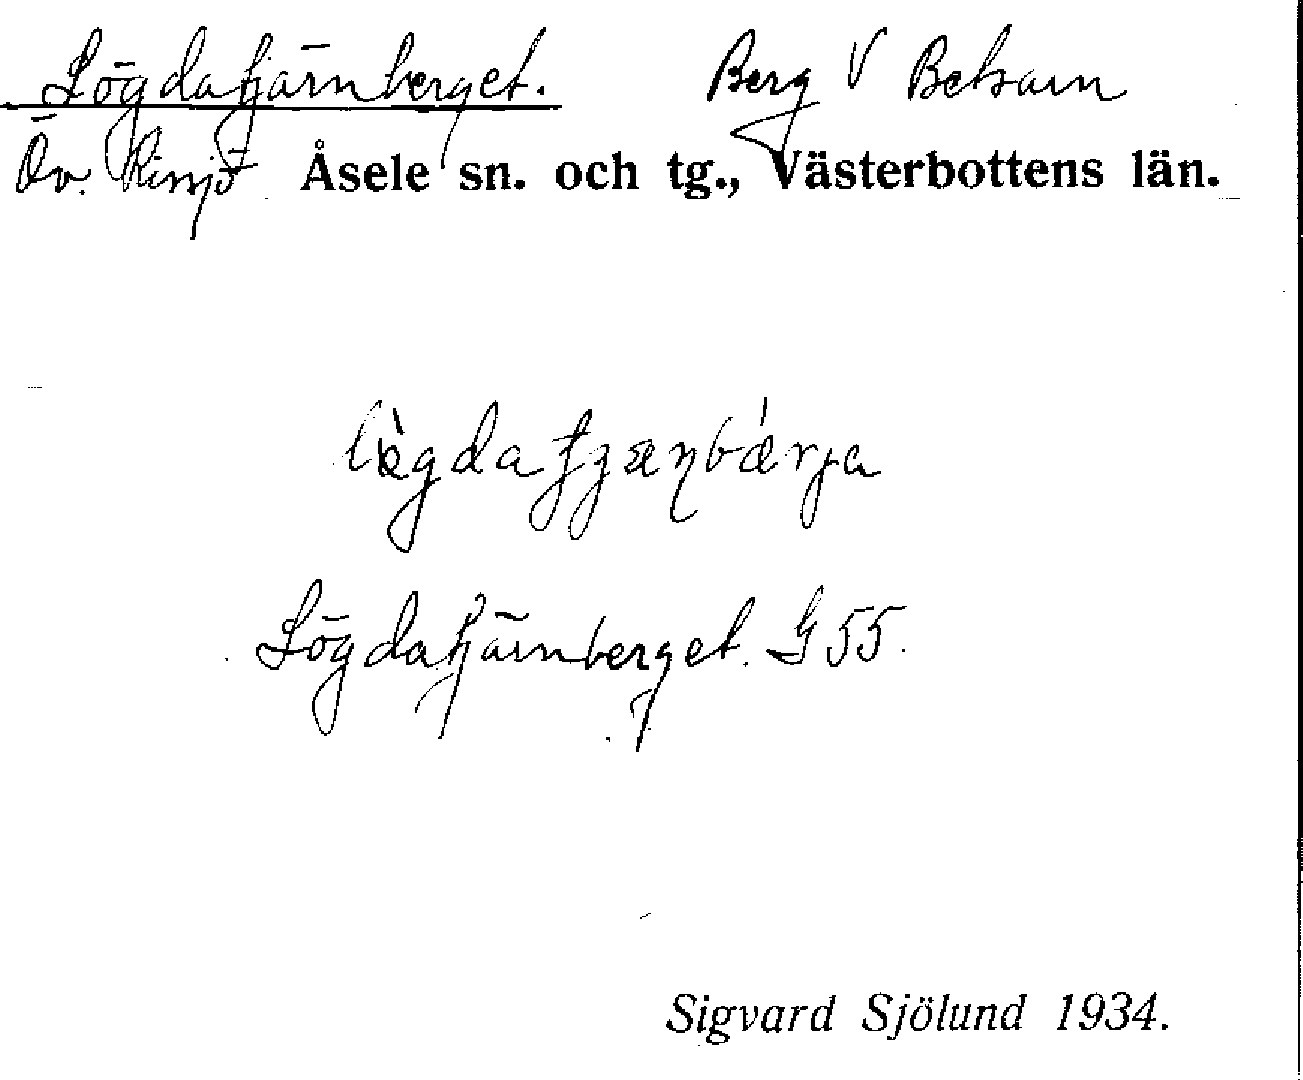 Lögdatjärnberget. Berg V Betsarn
Öv. Rissjö Åsele sn. och tg., Västerbottens län.
Lögdatjärnberget. G 55.
Sigvard Sjölund 1934.